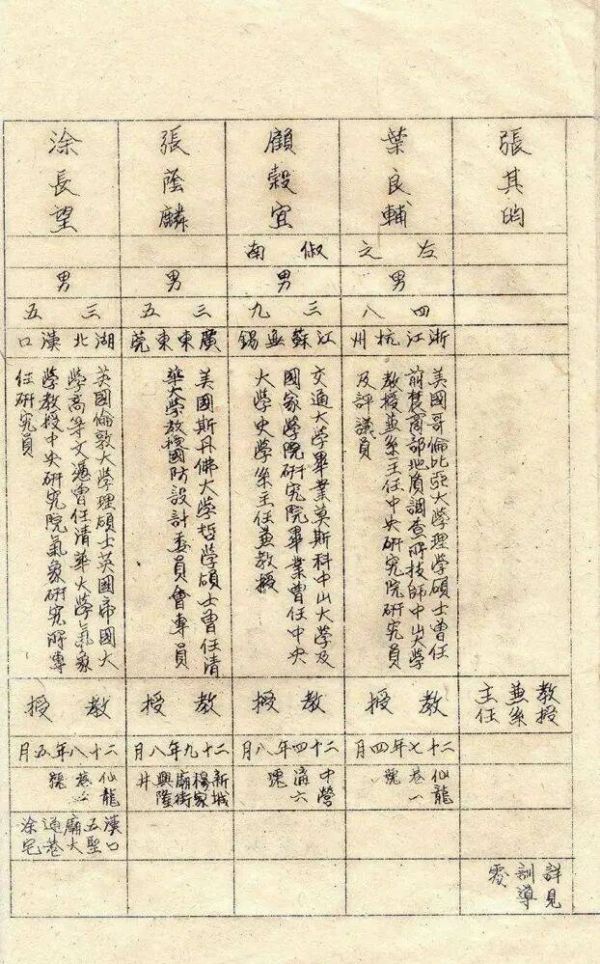 張其昀
教授
兼系
主任
詳見
訓導
處
葉良輔
左之
男
四八
浙江杭州
美國哥倫比亞大學理學碩士曾任
前農商部地質調查所技師中山大學
教授兼系主任中央研究院研究員
及評議員
教授
二十七年四月
仙龍
巷一
號
顧穀宜
俶南
男
三九
江蘇無錫
交通大學畢業莫斯科中山大學及
國家學院研究院畢業曾任中央
大學史學系主任兼教授
教授
二十四年八月
中營
通六
號
張蔭麟
男
三五
廣東東莞
美國斯丹佛大學哲學碩士曾任清
華大學教授國防設計委員會專員
教授
二十九年八月
新城
楊家
廟街
興隆
井
涂長望
男
三五
湖北漢口
英國倫敦大學理碩士英國帝國大
學高等文憑曾任清華大學氣象
學教授中央研究院氣象研究所專
任研究員
教授
二十八年五月
仙龍
巷六
號
漢口
五聖
廟大
通巷
涂宅